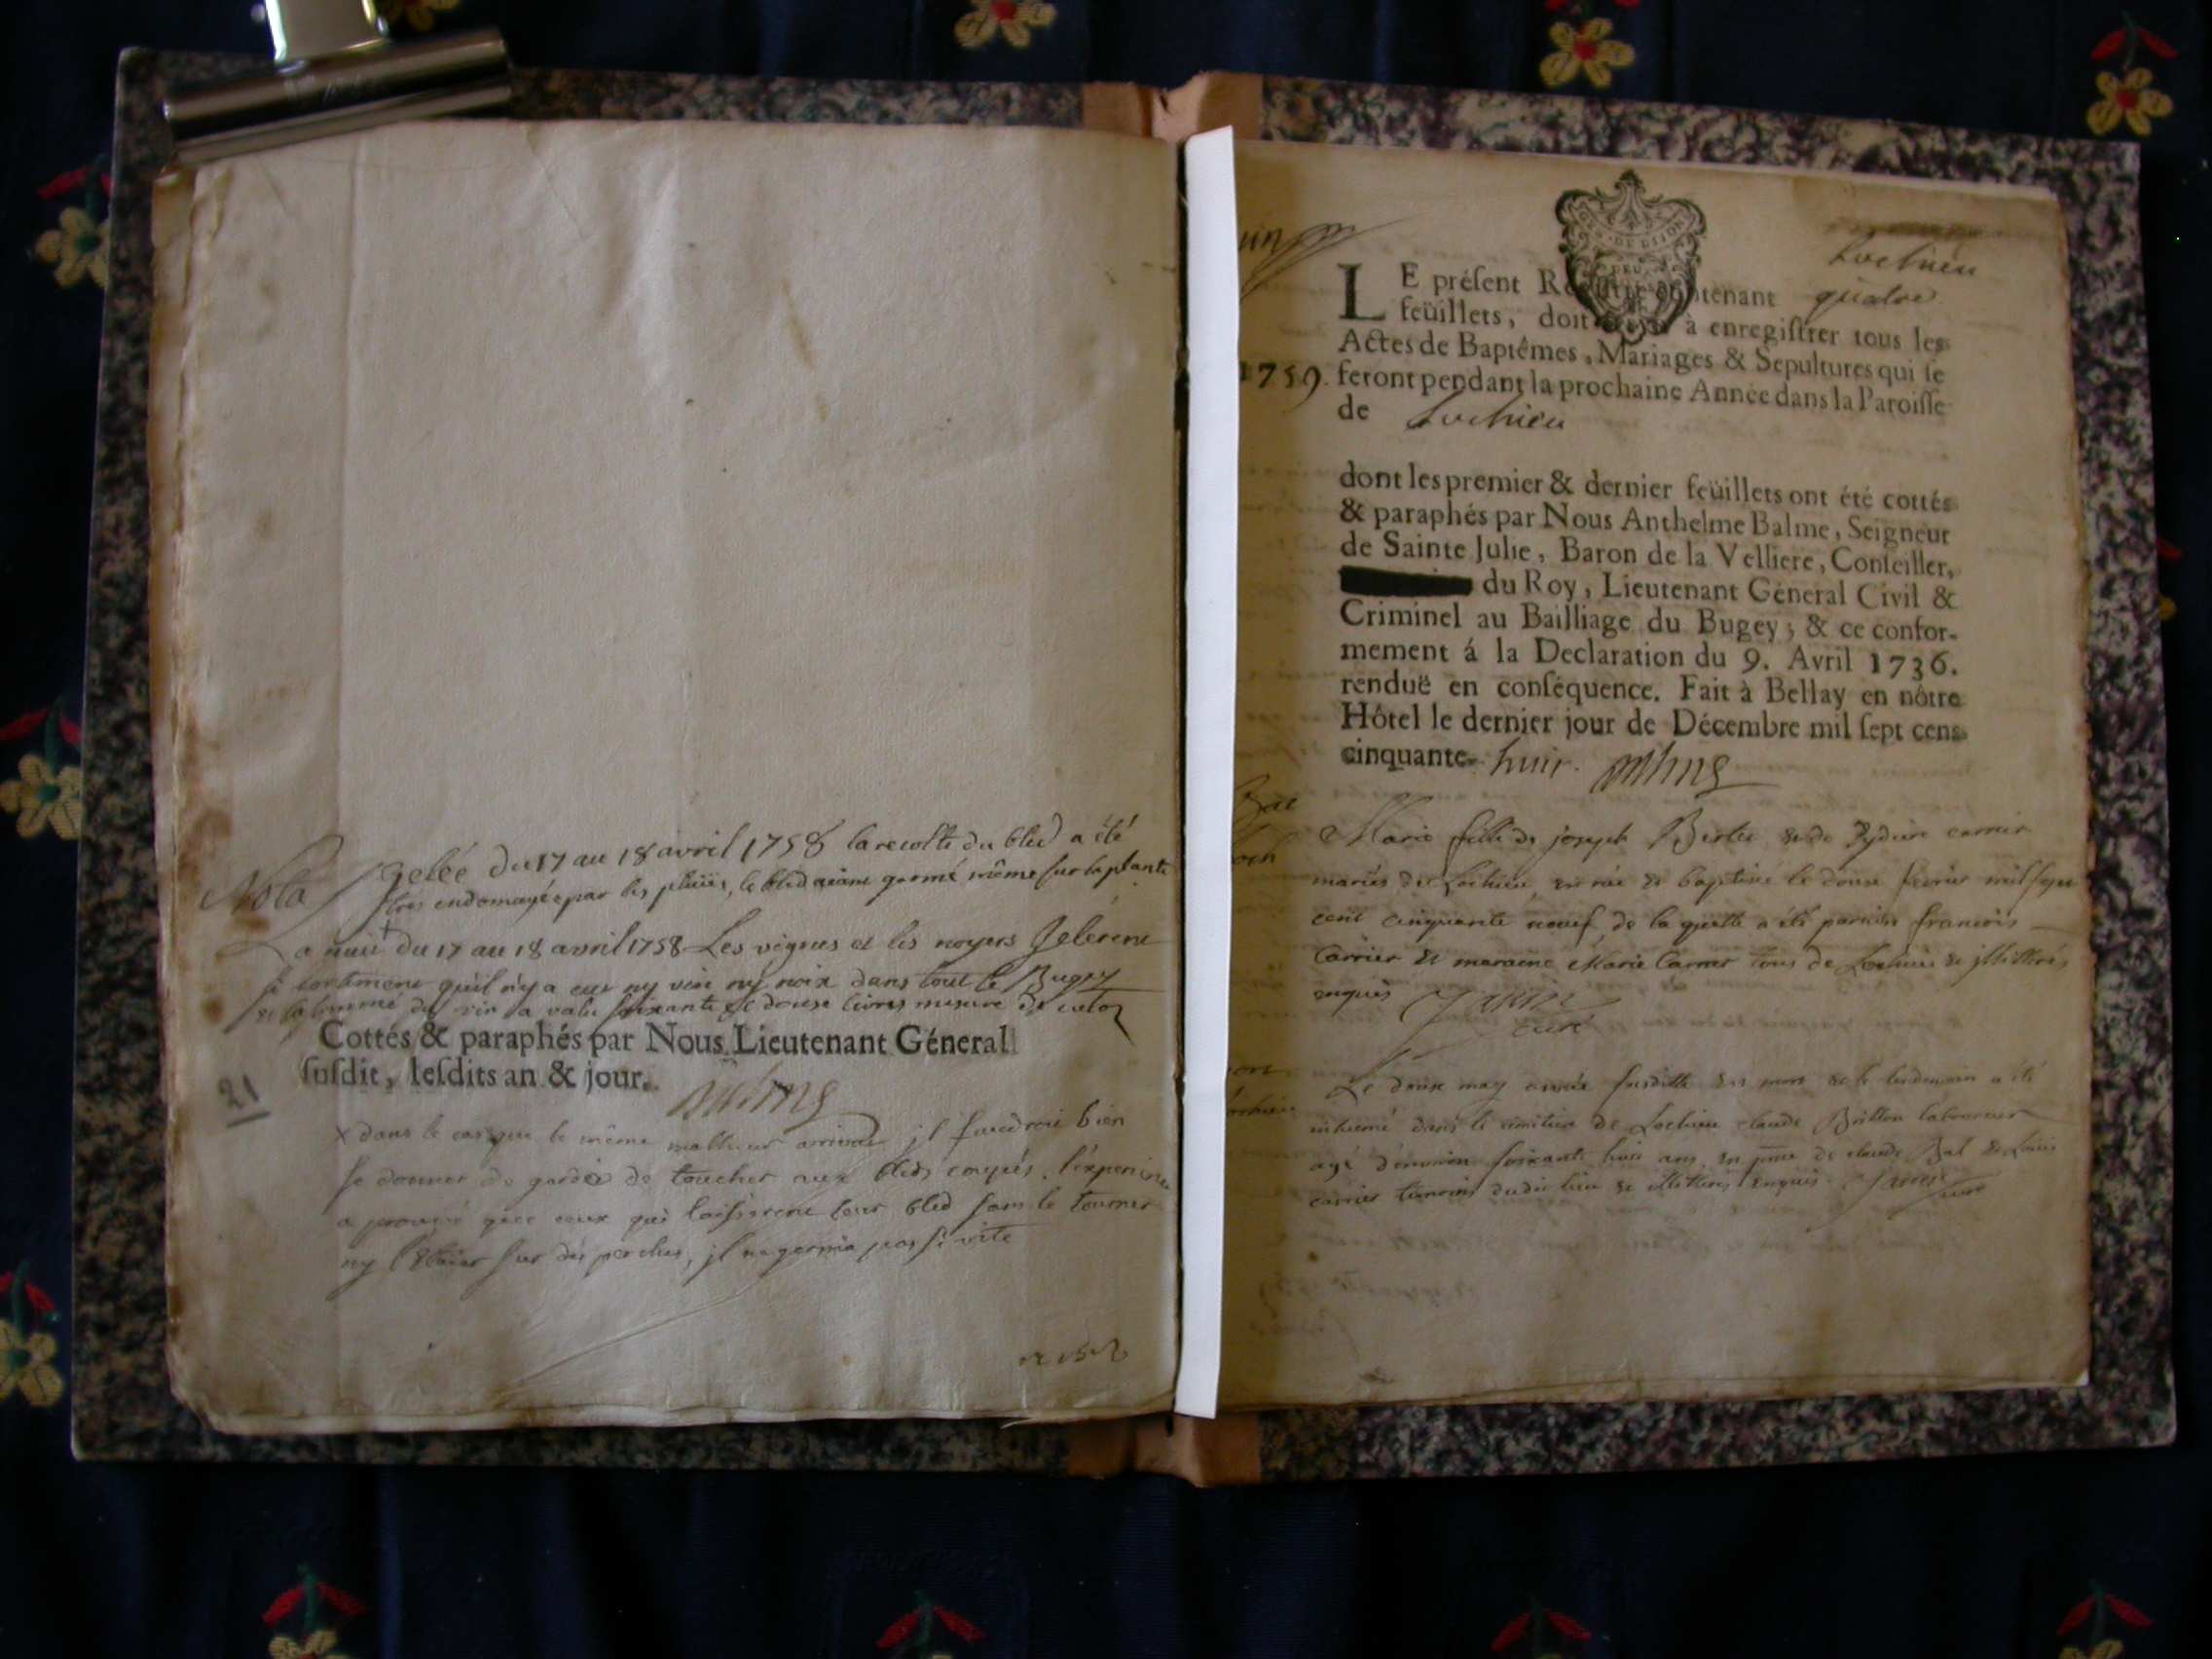 Nota
Gelée du 17 au 18 avril 1758 la recolte du bled a été
très endomagée par les pluïes, le bled aiant germé même sur la plante
la nuit du 17 au 18 avril 1758 Les vignes et les noyers Gelerent
si fortement qu'il n'y a eut ny vin ny noix dans tout le Bugey
du vin a valu soixante et douse livres mesure de
Cottés & paraphés par Nous Lieutenant Géneral
susdit, lesdits an & jour.
21
x dans le cas que le même malheur arrive il faudroit bien
se donner de garde de toucher aux bleds coupés. l'experience
a prouvé que ceux qui laisserent leur bled sans le tourner
ny sur des perches, il ne germa pas si vite
Lochieu
LE présent Registre contenant quatre
feüillets, doit servir à enregistrer tous les
Actes de Baptêmes, Mariages & Sepultures qui se
1759. feront pendant la prochaine Année dans la Paroisse
de Lochieu
dont les premier & dernier feüillets ont été cottés
& paraphés par Nous Anthelme Balme, Seigneur
de Sainte Julie, Baron de la Velliere, Conseiller,
du Roy, Lieutenant Géneral Civil &
Criminel au Bailliage du Bugey; & ce confor-
mement á la Declaration du 9. Avril 1736.
renduë en conséquence. Fait à Bellay en nôtre
Hôtel le dernier jour de Décembre mil sept cens
cinquante- huit.
Marie fille de joseph Bertet et de carrier
mariés de Lochieu, est née et baptisée le douse fevrier mil sept
cent cinquante neuf, de la quelle a été parrain francois
Carrier et maraine Marie Carrier tous de Lochieu et illitteres
enquis
curé
Le douse may année susditte est mort et le lendemain a été
inhumé dans le cimitiere de Lochieu claude Brillon laboureur
agé d'environ soixante huit ans, en pnce de claude Bal et Louis
carrier temoins dudit lieu et illitteres enquis.
curé